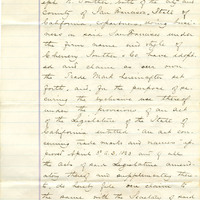 eph R. Souther, of the City and
County of San Francisco, State of
California, copartners, doing busi-
ness in said San Francisco under
the firm name and style of
Cheney, Souther & Co. have adopt-
ed and claim as our own
the Trade Mark hereinafter set
forth, and, for the purpose of se-
curing the exclusive use thereof
under the provisions of an act
of the Legislature of the State of
California entitled "an act con-
cerning trade marks and names" ap-
proved April 3d 1863 and of all
the acts of said Legislature amend-
atory thereof and supplementary there-
to do hereby file our claim to
the same with the Secretary of said